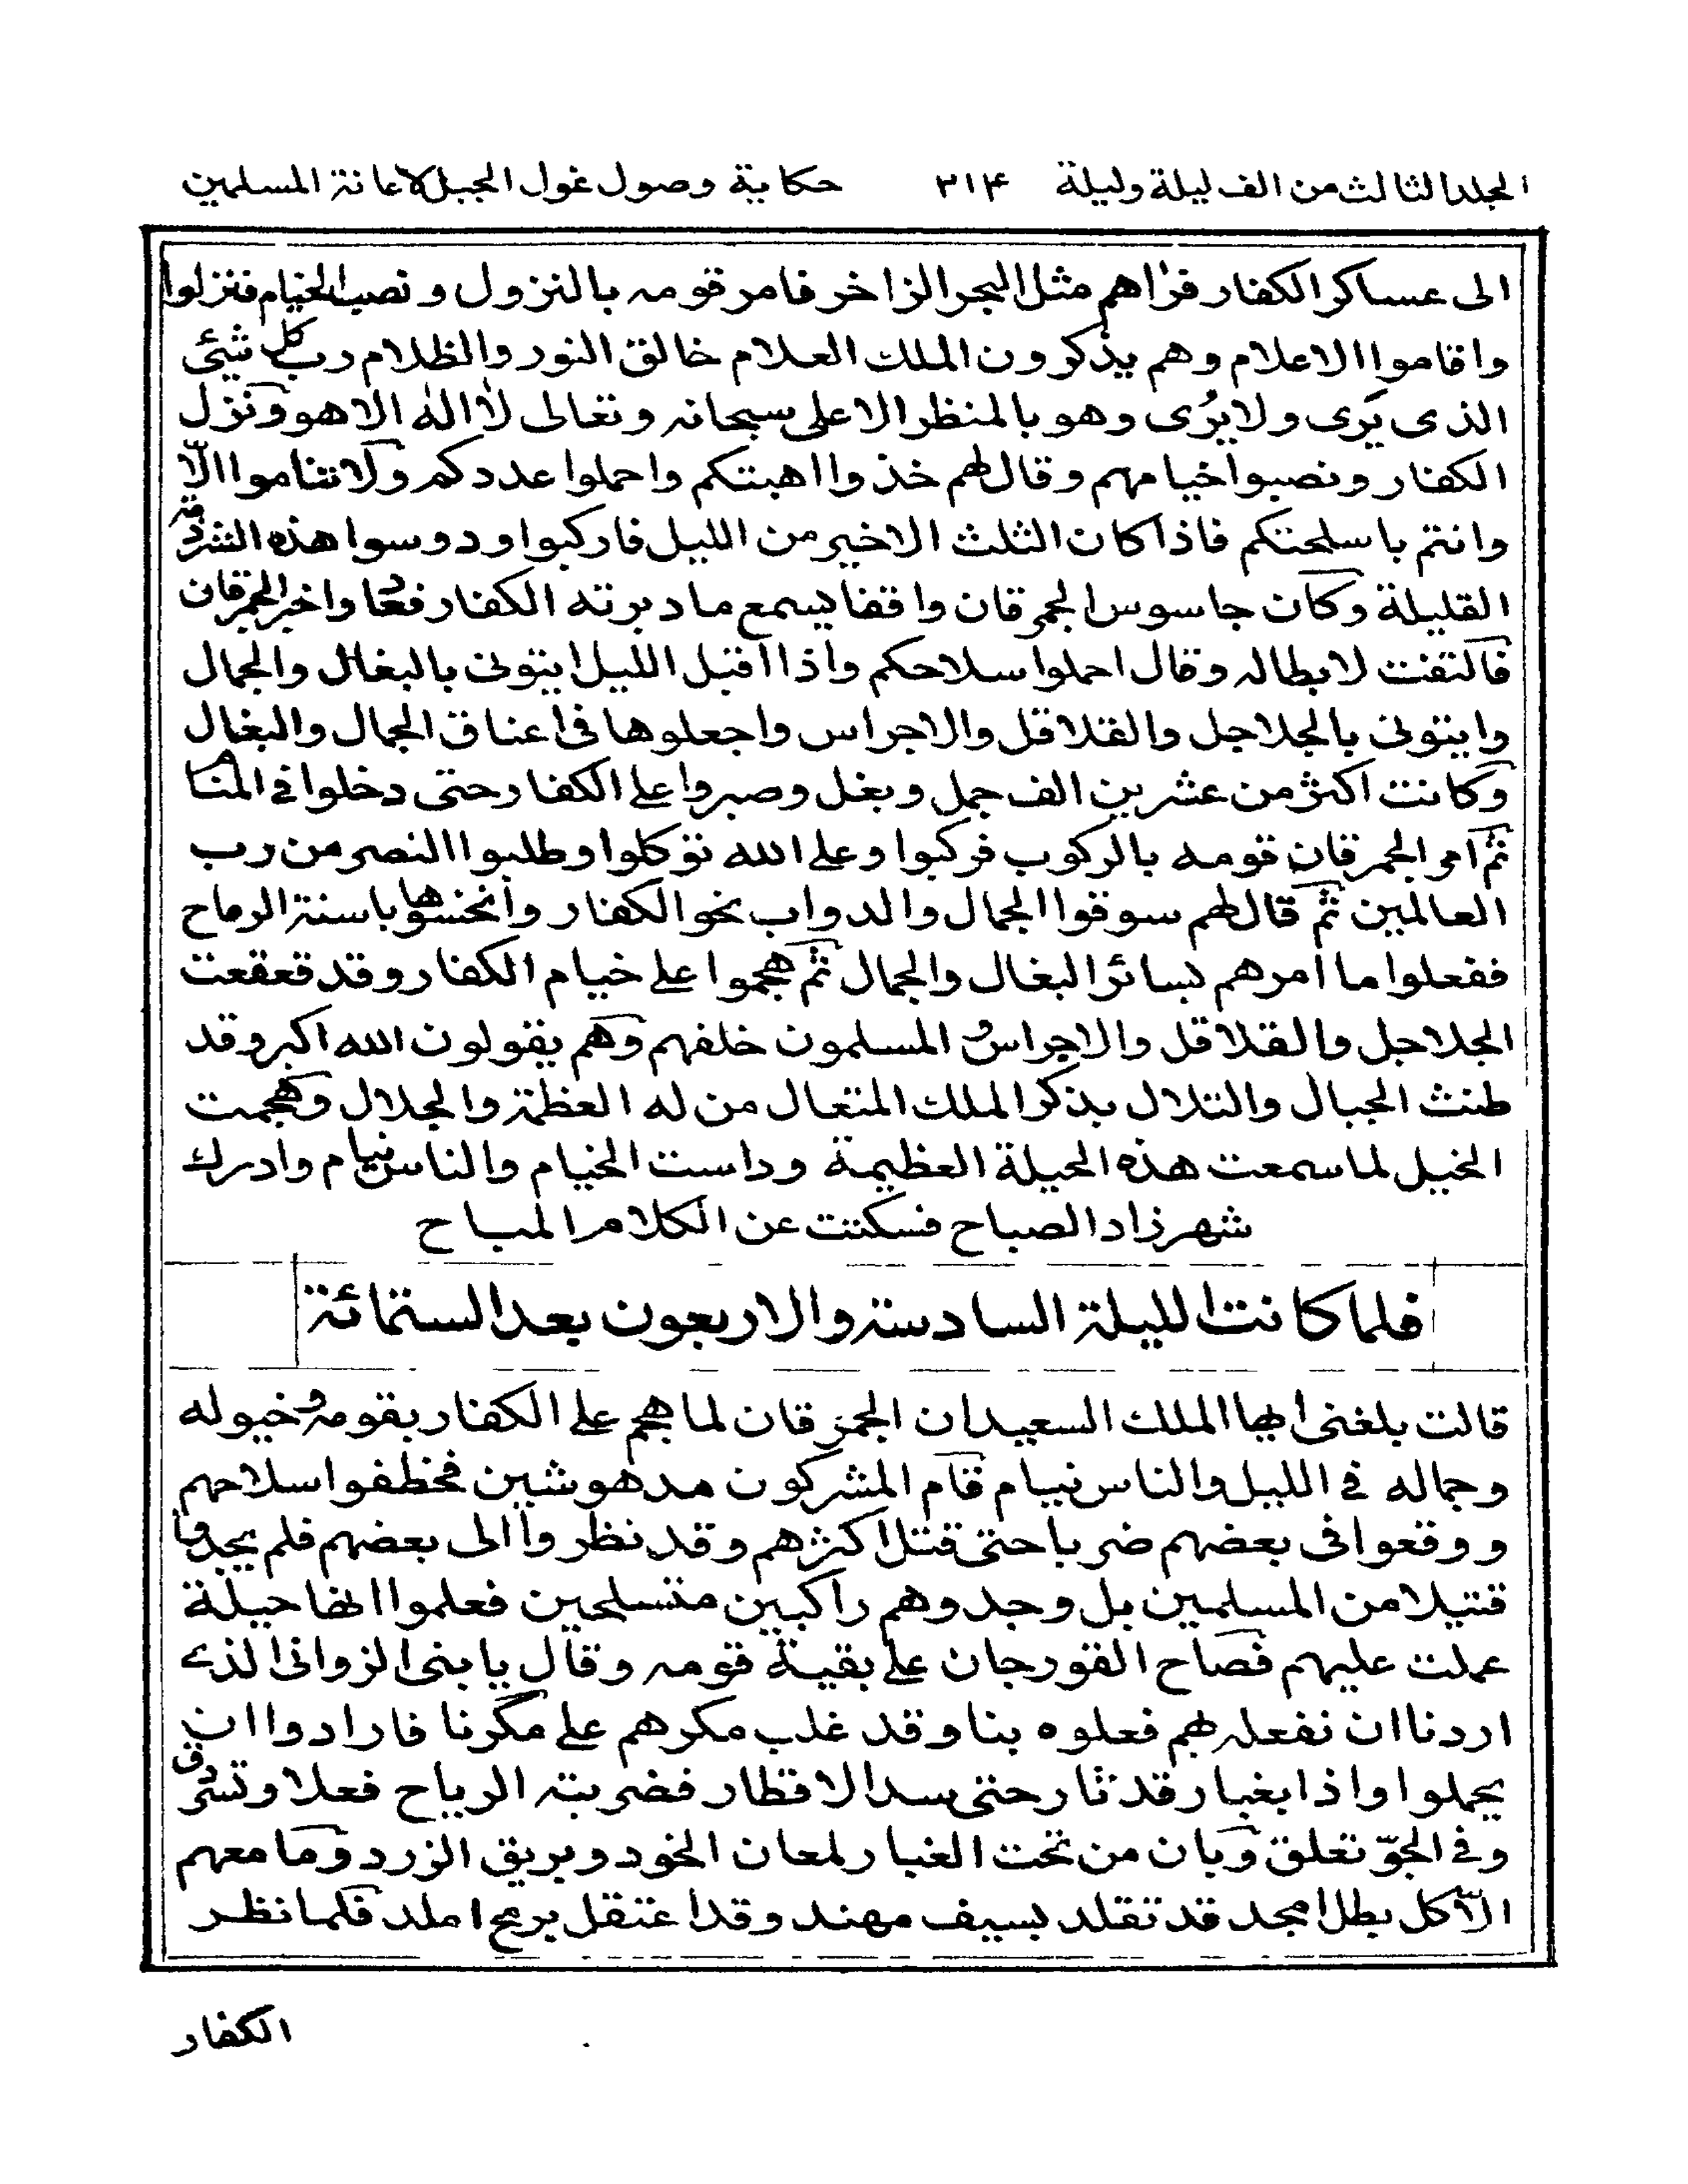 المجلد الثالث من الف ليلة وليلة ٣١۴ حكاية وصول غول الجبل لاعانة المسلمين
الى عساكر الكفار فراٰهم مثل البحر الزاخر فامر قومه بالنزول و نصب الخيام فنزلوا
واقاموا الاعلام وهم يذكرون الملك العلام خالق النور والظلام رب كل شئى
الذى يَرى ولا يُرى وهو بالمنظر الاعلى سبحانه وتعالى لا اله الا هو ونزل
الكفار ونصبوا خيامهم وقال لهم خذوا اهبتكم واحملوا عددكم ولا تناموا الّا
وانتم باسلحتكم فاذا كان الثلث الاخير من الليل فاركبوا ودوسوا هذه الشرذمة
القليلة وكان جاسوس الجمرقان واقفا يسمع ما دبرته الكفار فعاد واخبر الجمرقان
فالتفت لابطاله وقال احملوا سلاحكم واذا اقبل الليل ايتونى بالبغال والجمال
وايتونى بالجلاجل والقلاقل والاجراس واجعلوها فى اعناق الجمال والبغال
وكانت اكثر من عشرين الف جمل وبغل وصبروا على الكفار حتى دخلوا فى المنام
ثم امر الجمرقان قومه بالركوب فركبوا وعلى الله توكلوا وطلبوا النصر من رب
العالمين ثم قال لهم سوقوا الجمال والدواب نحو الكفار وانخسوها باسنة الرماح
ففعلوا ما امرهم بسائر البغال والجمال ثم هجموا على خيام الكفار وقد قعقعت
الجلاجل والقلاقل والاجراس و المسلمون خلفهم وهم يقولون الله اكبر وقد
طنت الجبال والتلال بذكر الملك المتعال من له العظمة والجلال وهجمت
الخيل لما سمعت هذه الحيلة العظيمة وداست الخيام والناس نيام وادرك
شهرزاد الصباح فسكتت عن الكلام المباح
فلما كانت الليلة السادسة والاربعون بعد الستمائة
قالت بلغنى ايها الملك السعيد ان الجمرقان لما هجم على الكفار بقومه وخيوله
وجماله فى الليل والناس نيام قام المشركون مدهوشين فخطفوا سلاحهم
ووقعوا فى بعضهم ضربا حتى قتل اكثرهم وقد نظروا الى بعضهم فلم يجدوا
قتيلا من المسلمين بل وجدوهم راكبين متسلحين فعلموا انها حيلة
عملت عليهم فصاح القورجان على بقية قومه وقال يا بنى الزوانى الذى
اردنا ان نفعله بهم فعلوه بنا وقد غلب مكرهم على مكرنا فارادوا ان
يحملوا واذا بغبار قد ثار حتى سد الاقطار فضربته الرياح فعلا وتسردق
وفى الجوّ تعلق وبان من تحت الغبار لمعان الخود وبريق الزرد وما معهم
الّا كل بطل امجد قد تقلد بسيف مهند وقد اعتقل برمح املد فلما نظر
الكفار